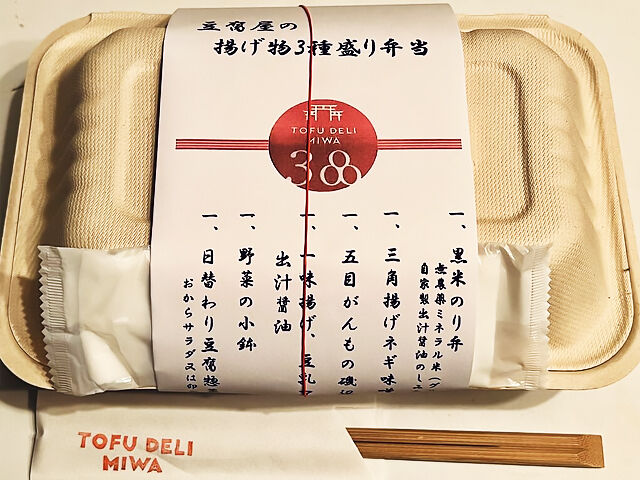 豆腐屋の
揚げ物3種盛り弁当
TOFU DELI
MIWA
38
一、黒米のり弁
無農薬ミネラル米
自家製出汁醤油のし
一、三角揚げネギ味
一、五目がんもの磯
一、一味揚げ、豆乳
出汁醤油
一、野菜の小鉢
一、日替わり豆腐
おからサラダ又は卯
TOFU DELI
MIWA